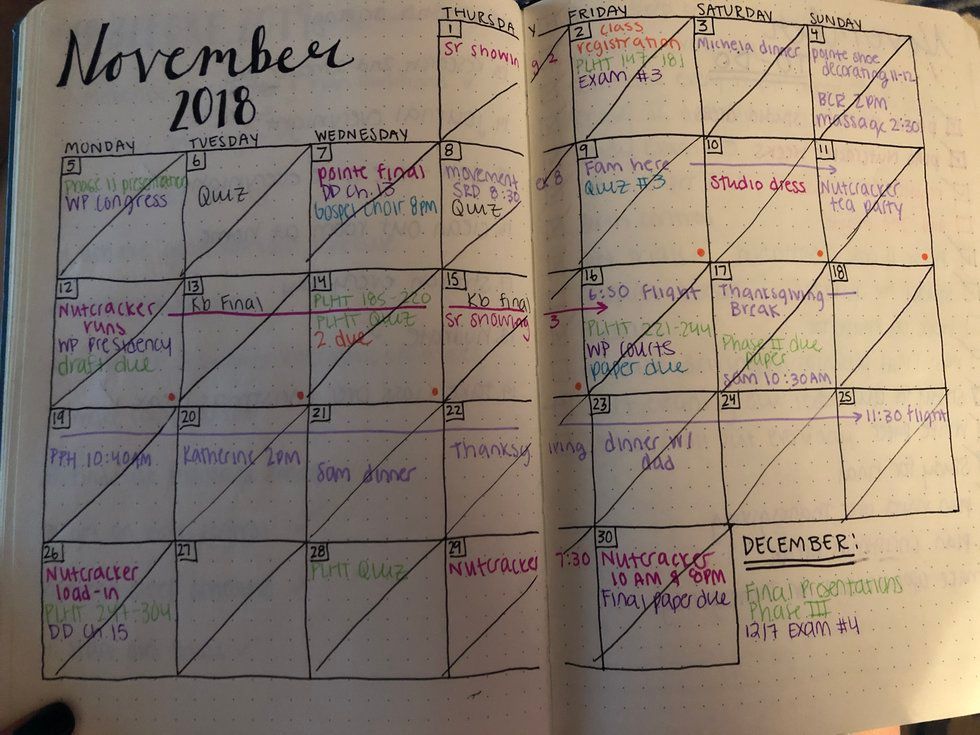 November
2018
THURSDAY
FRIDAY
SATURDAY
SUNDAY
1
Sr showing 2
2 class
registration
PLHT 147-181
EXAM #3
3
Michela dinner
4
pointe shoe
decorating 11-12
BCR 2pm
massage 2:30
MONDAY
TUESDAY
WEDNESDAY
5
Phase II presentation
WP congress
6
Quiz
7
pointe final
DD ch. 13
Gospel choir 8pm
8
movement ex 8
SRD 8:30
Quiz
9
Fam here
Quiz #3
10
studio dress
11
Nutcracker
tea party
12
Nutcracker
runs
WP presidency
draft due
13
Kb Final
14
PLHT 185-220
PLHT Quiz
2 due
15
Kb final
Sr showing 3
16
6:50 flight
PLHT 221-244
WP courts
paper due
17
Thanksgiving
Break
Phase II due
paper
sam 10:30AM
18
19
PPH 10:40AM
20
Katherine 2pm
21
Sam dinner
22
Thanksgiving
23
dinner w/
dad
24
25
11:30 flight
26
Nutcracker
load-in
PLHT 247-304
DD Ch.15
27
28
PLHT Quiz
29
Nutcracker 7:30
30
Nutcracker
10 AM & 8PM
Final paper due
DECEMBER:
Final Presentations
Phase III
12/7 Exam #4